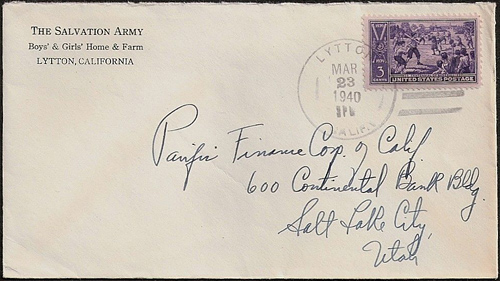 THE SALVATION ARMY
Boys' & Girls' Home & Farm
LYTTON, CALIFORNIA
LYTTON
MAR
23
1940
CALIF.
3
CENTS
UNITED STATES POSTAGE
Pacific Finance Corp. of Calif
600 Continental Bank Bldg.
Salt Lake City,
Utah